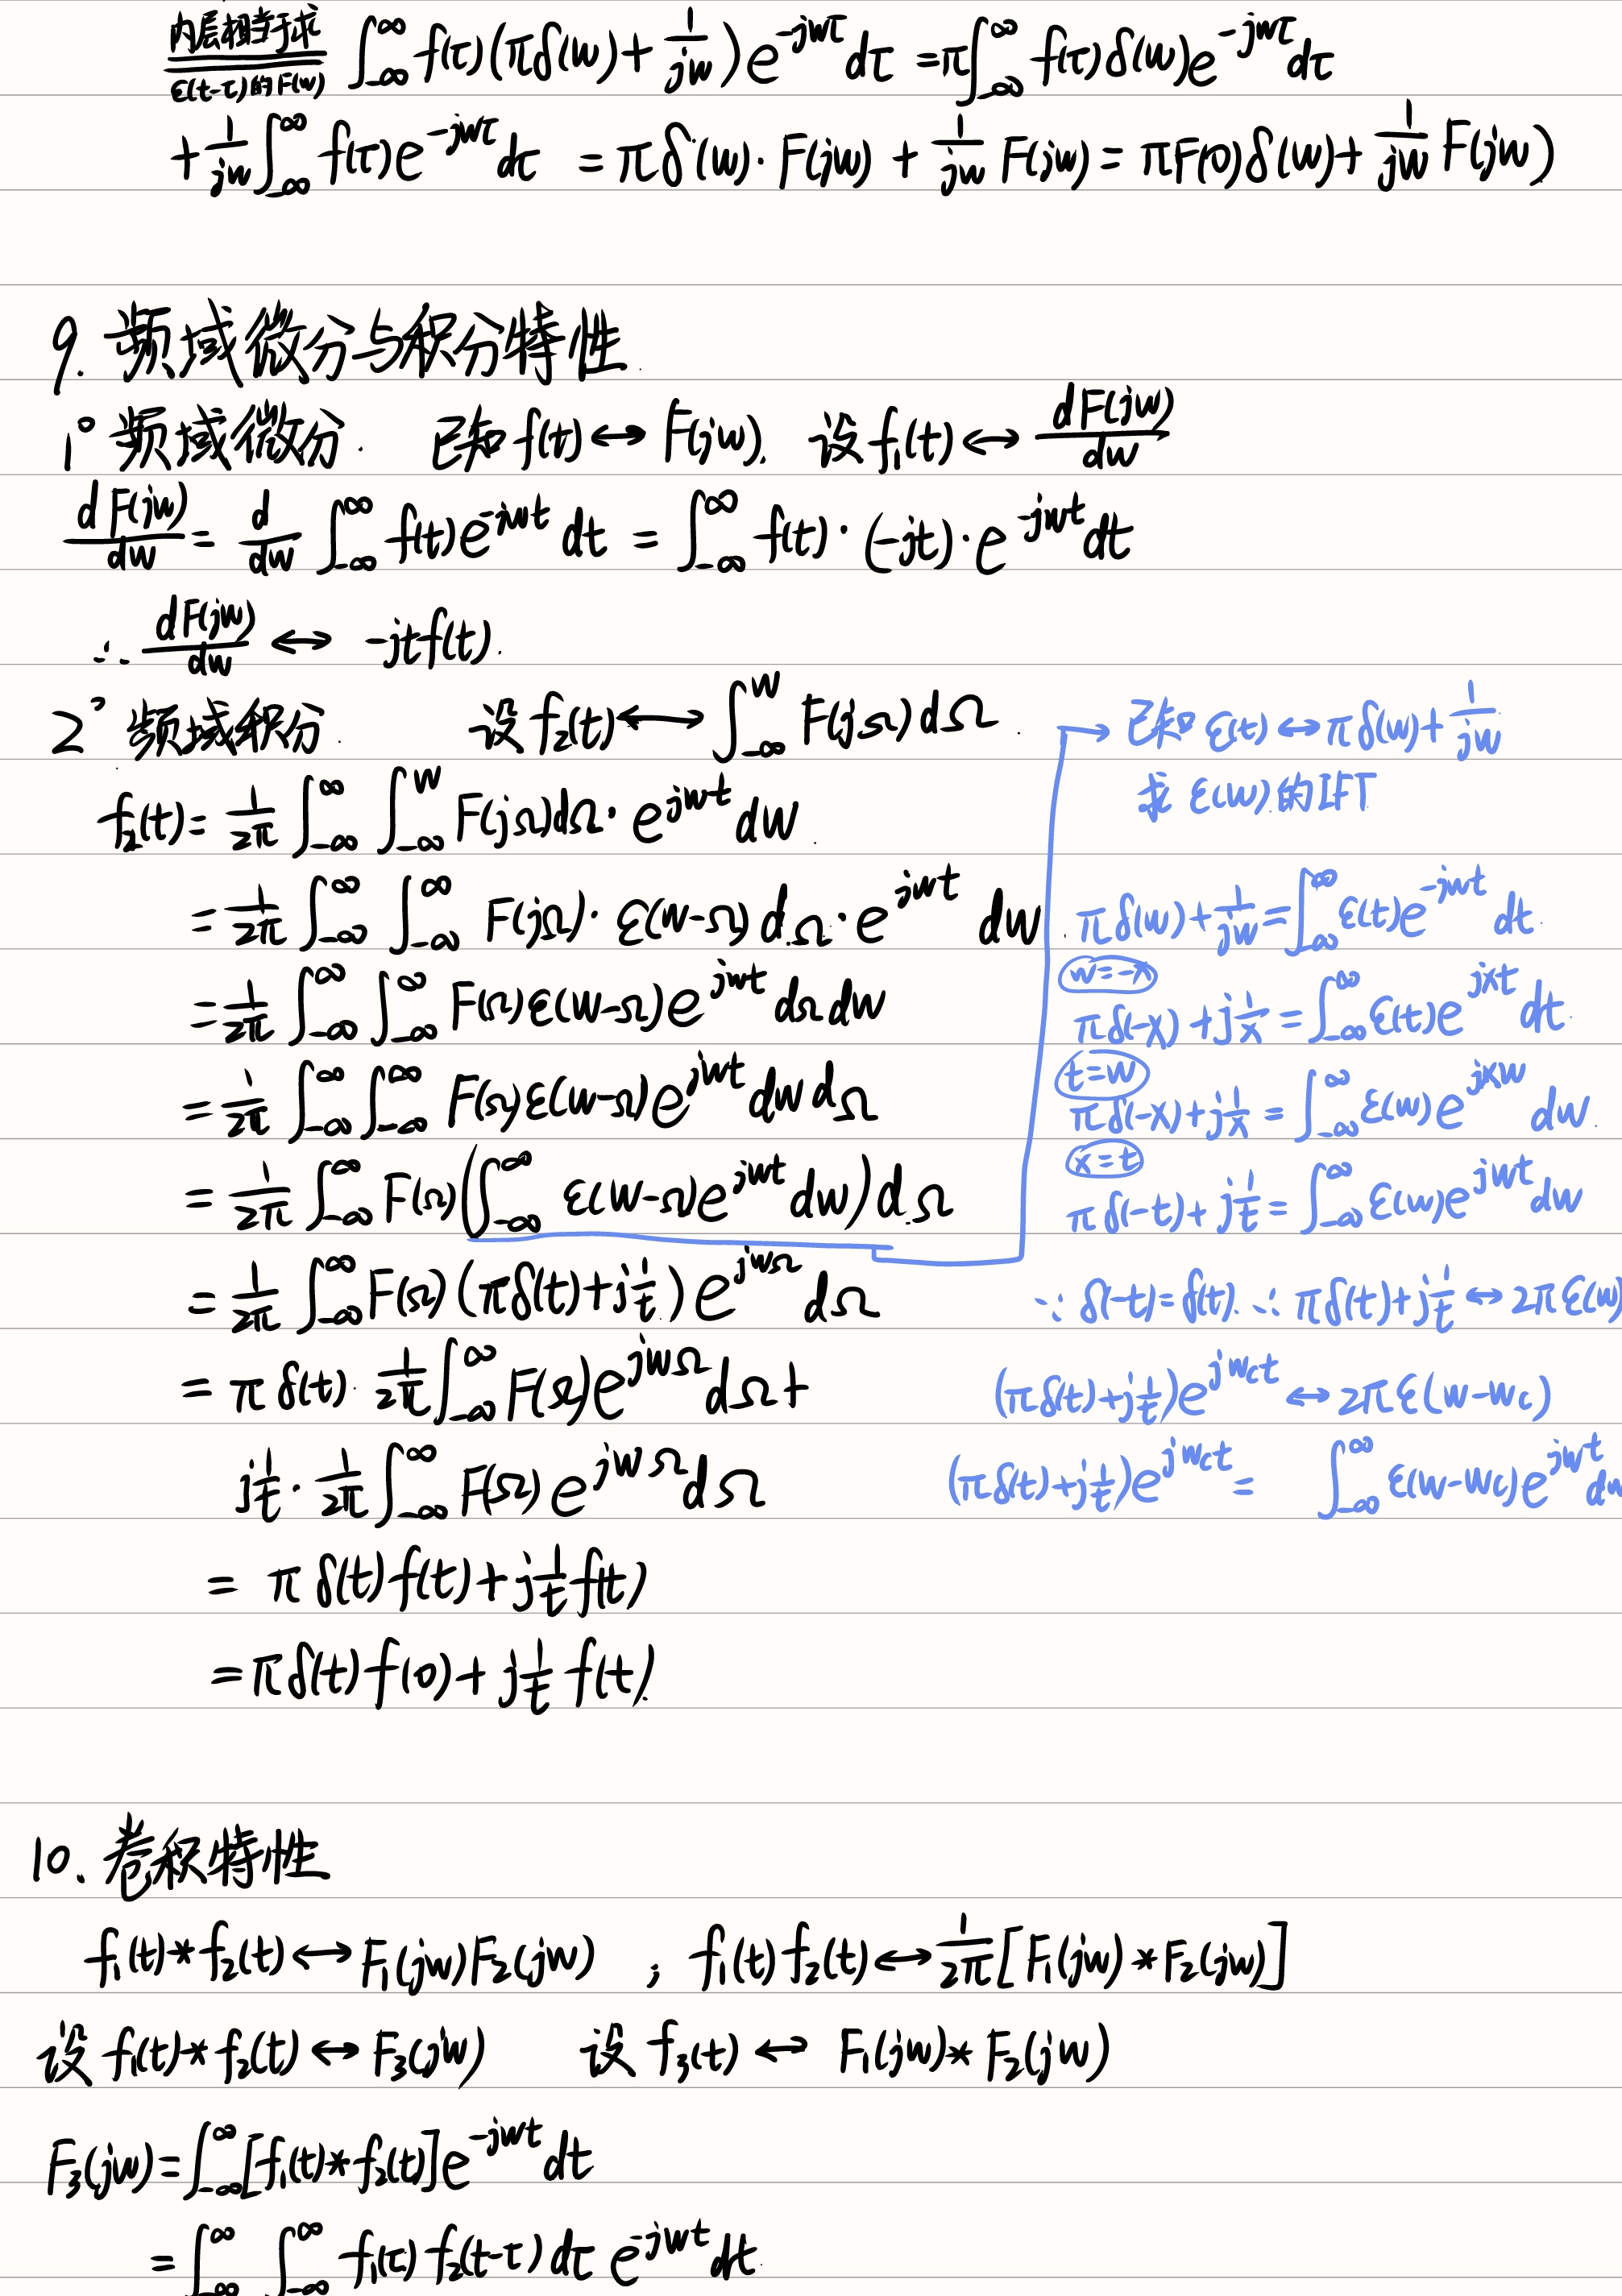 内层相当于求 ε(t-τ)的F(w) ∫_{-∞}^{∞} f(τ)(πδ(w)+1/jw)e^{-jwτ}dτ = π∫_{-∞}^{∞} f(τ)δ(w)e^{-jwτ}dτ
+ 1/jw ∫_{-∞}^{∞} f(τ)e^{-jwτ}dτ = πδ(w)·F(jw) + 1/jw F(jw) = πF(0)δ(w) + 1/jw F(jw)
9. 频域微分与积分特性
1° 频域微分. 已知 f(t)↔F(jw). 设 f₁(t)↔ dF(jw)/dw
dF(jw)/dw = d/dw ∫_{-∞}^{∞} f(t)e^{-jwt}dt = ∫_{-∞}^{∞} f(t)·(-jt)·e^{-jwt}dt
∴ dF(jw)/dw ↔ -jtf(t).
2° 频域积分. 设 f₂(t)↔∫_{-∞}^{w} F(jΩ)dΩ
f₂(t) = 1/2π ∫_{-∞}^{∞} ∫_{-∞}^{w} F(jΩ)dΩ·e^{jwt}dw
= 1/2π ∫_{-∞}^{∞} ∫_{-∞}^{∞} F(jΩ)·ε(w-Ω)dΩ·e^{jwt} dw
= 1/2π ∫_{-∞}^{∞} ∫_{-∞}^{∞} F(Ω)ε(w-Ω)e^{jwt}dΩdw
= 1/2π ∫_{-∞}^{∞} ∫_{-∞}^{∞} F(Ω)ε(w-Ω)e^{jwt}dwdΩ
= 1/2π ∫_{-∞}^{∞} F(Ω)(∫_{-∞}^{∞} ε(w-Ω)e^{jwt}dw)dΩ
= 1/2π ∫_{-∞}^{∞} F(Ω)(πδ(t)+j1/t)e^{jwΩ}dΩ
= πδ(t)·1/2π ∫_{-∞}^{∞} F(Ω)e^{jwΩ}dΩ+
j1/t·1/2π ∫_{-∞}^{∞} F(Ω)e^{jwΩ}dΩ
= πδ(t)f(t)+j1/t f(t)
= πδ(t)f(0)+j1/t f(t).
→ 已知 ε(t)↔πδ(w)+1/jw
求 ε(w)的IFT
πδ(w)+1/jw = ∫_{-∞}^{∞} ε(t)e^{-jwt}dt
w=-x
πδ(-x)+j1/x = ∫_{-∞}^{∞} ε(t)e^{jxt}dt.
t=w
πδ(-x)+j1/x = ∫_{-∞}^{∞} ε(w)e^{jxw}dw.
x=t
πδ(-t)+j1/t = ∫_{-∞}^{∞} ε(w)e^{jwt}dw
∵ δ(-t)=δ(t). ∴ πδ(t)+j1/t ↔ 2πε(w)
(πδ(t)+j1/t)e^{jw_ct} ↔ 2πε(w-w_c)
(πδ(t)+j1/t)e^{jw_ct} = ∫_{-∞}^{∞} ε(w-w_c)e^{jwt}dw
10. 卷积特性
f₁(t)*f₂(t)↔F₁(jw)F₂(jw) ; f₁(t)f₂(t)↔1/2π[F₁(jw)*F₂(jw)]
设 f₁(t)*f₂(t)↔F₃(jw) 设 f₃(t)↔F₁(jw)*F₂(jw)
F₃(jw)=∫_{-∞}^{∞}[f₁(t)*f₂(t)]e^{-jwt}dt
= ∫_{-∞}^{∞} ∫_{-∞}^{∞} f₁(τ)f₂(t-τ)dτ e^{-jwt}dt